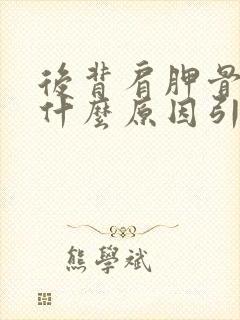 後背肩胛骨
什麼原因引
熊學斌